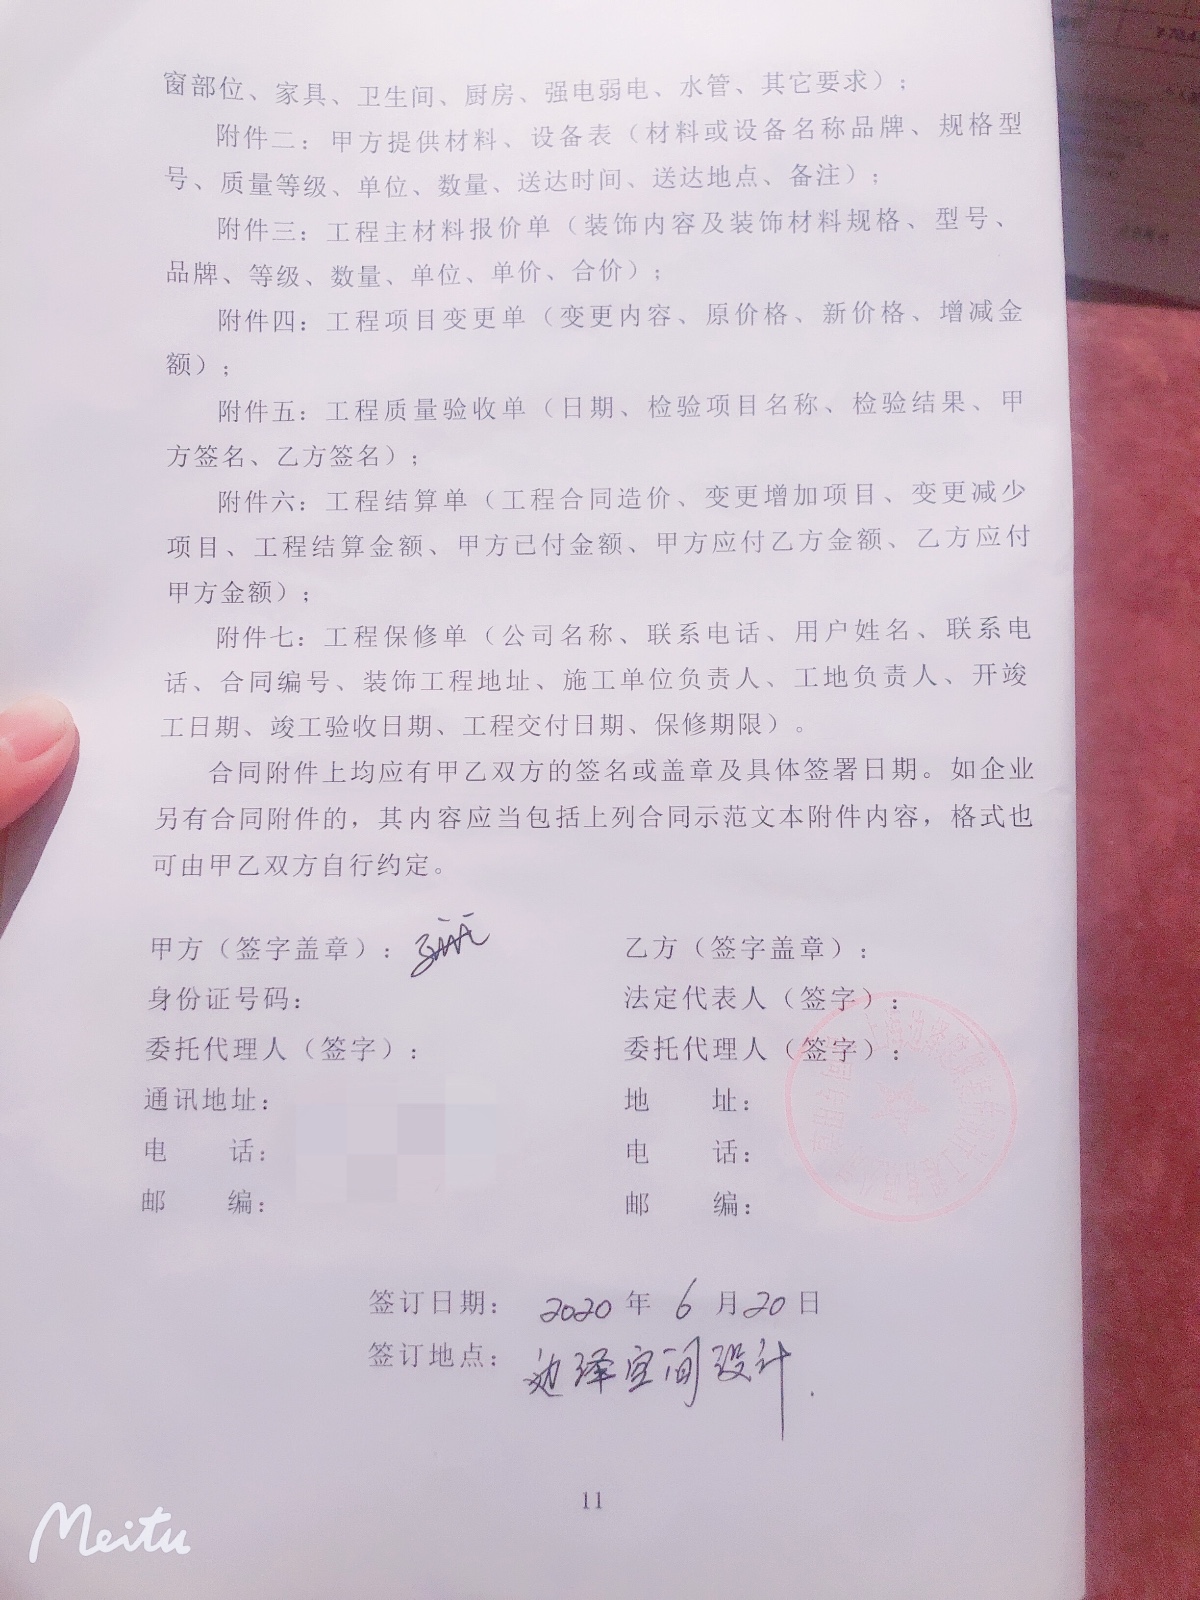 窗部位、家具、卫生间、厨房、强电弱电、水管、其它要求）；
附件二：甲方提供材料、设备表（材料或设备名称品牌、规格型
号、质量等级、单位、数量、送达时间、送达地点、备注）；
附件三：工程主材料报价单（装饰内容及装饰材料规格、型号、
品牌、等级、数量、单位、单价、合价）；
附件四：工程项目变更单（变更内容、原价格、新价格、增减金
额）；
附件五：工程质量验收单（日期、检验项目名称、检验结果、甲
方签名、乙方签名）；
附件六：工程结算单（工程合同造价、变更增加项目、变更减少
项目、工程结算金额、甲方已付金额、甲方应付乙方金额、乙方应付
甲方金额）；
附件七：工程保修单（公司名称、联系电话、用户姓名、联系电
话、合同编号、装饰工程地址、施工单位负责人、工地负责人、开竣
工日期、竣工验收日期、工程交付日期、保修期限）。
合同附件上均应有甲乙双方的签名或盖章及具体签署日期。如企业
另有合同附件的，其内容应当包括上列合同示范文本附件内容，格式也
可由甲乙双方自行约定。
甲方（签字盖章）： 乙方（签字盖章）：
身份证号码： 法定代表人（签字）：
委托代理人（签字）： 委托代理人（签字）：
通讯地址： 地 址：
电 话： 电 话：
邮 编： 邮 编：
签订日期： 2020 年 6 月 20 日
签订地点： 边泽空间设计.
11
Meitu